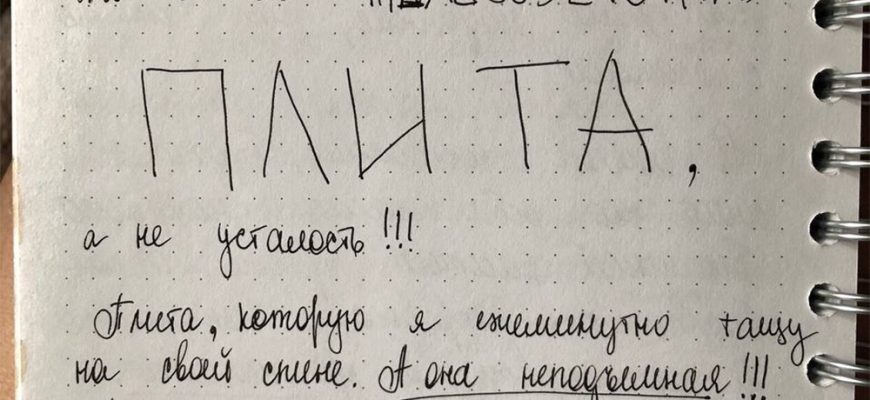 ПЛИТА,
а не усталость!!!
Плита, которую я ежеминутно тащу
на своей спине. А она неподъемная!!!